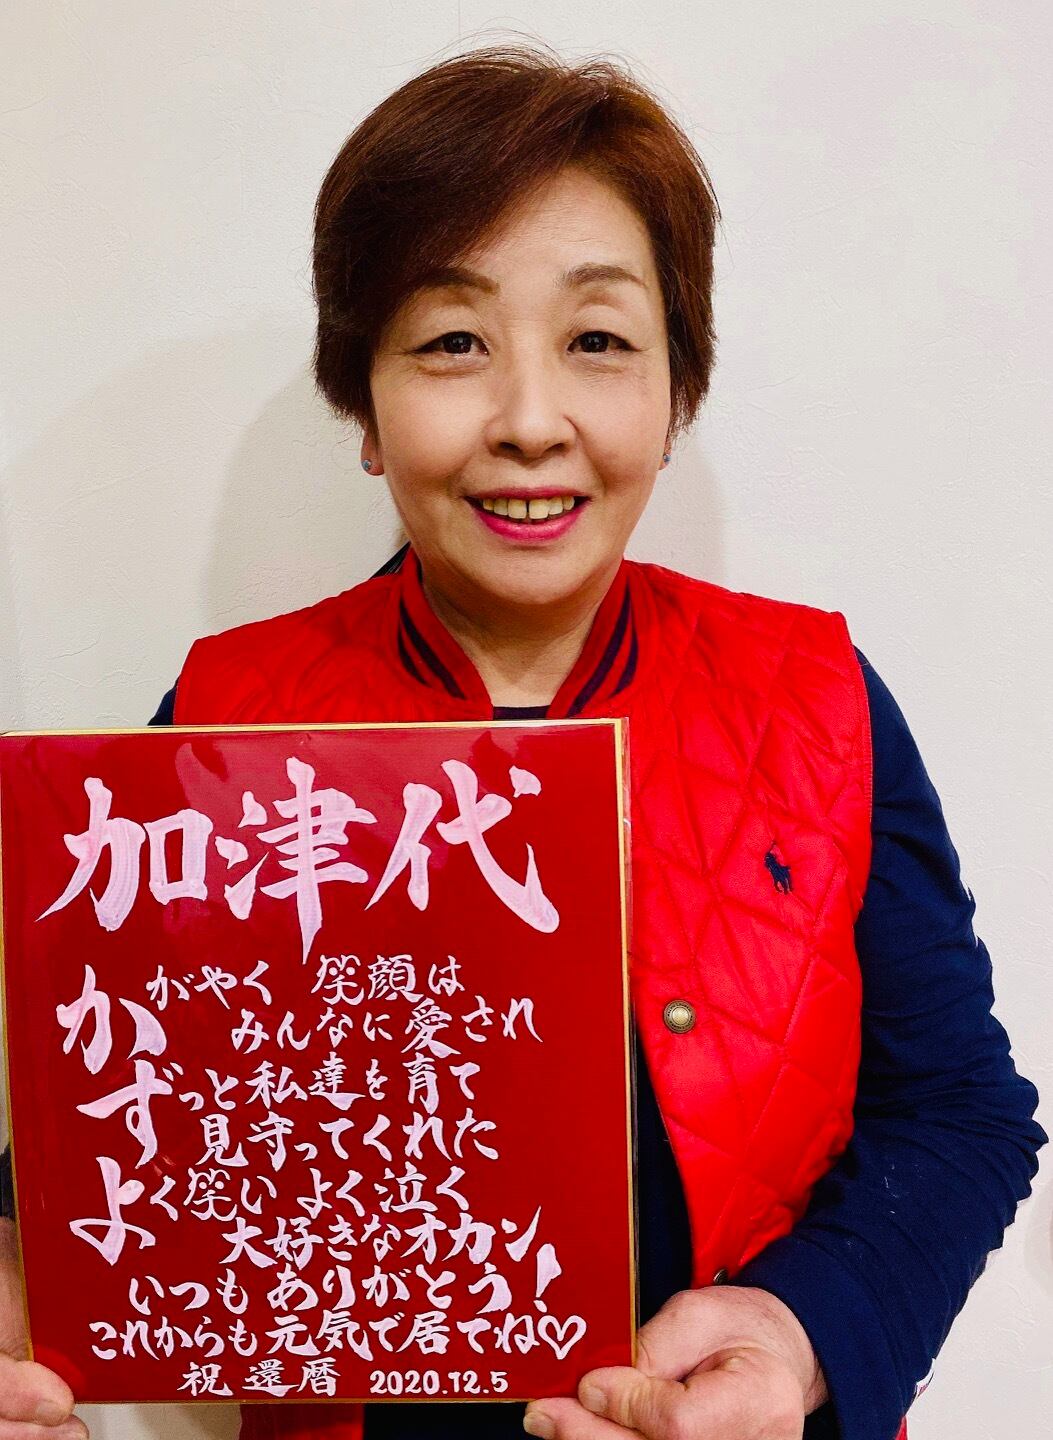 加津代
かがやく 笑顔は
みんなに愛され
ずっと私達を育て
見守ってくれた
よく笑い よく泣く
大好きなオカン
いつもありがとう!
これからも元気で居てね♡
祝還暦 2020.12.5